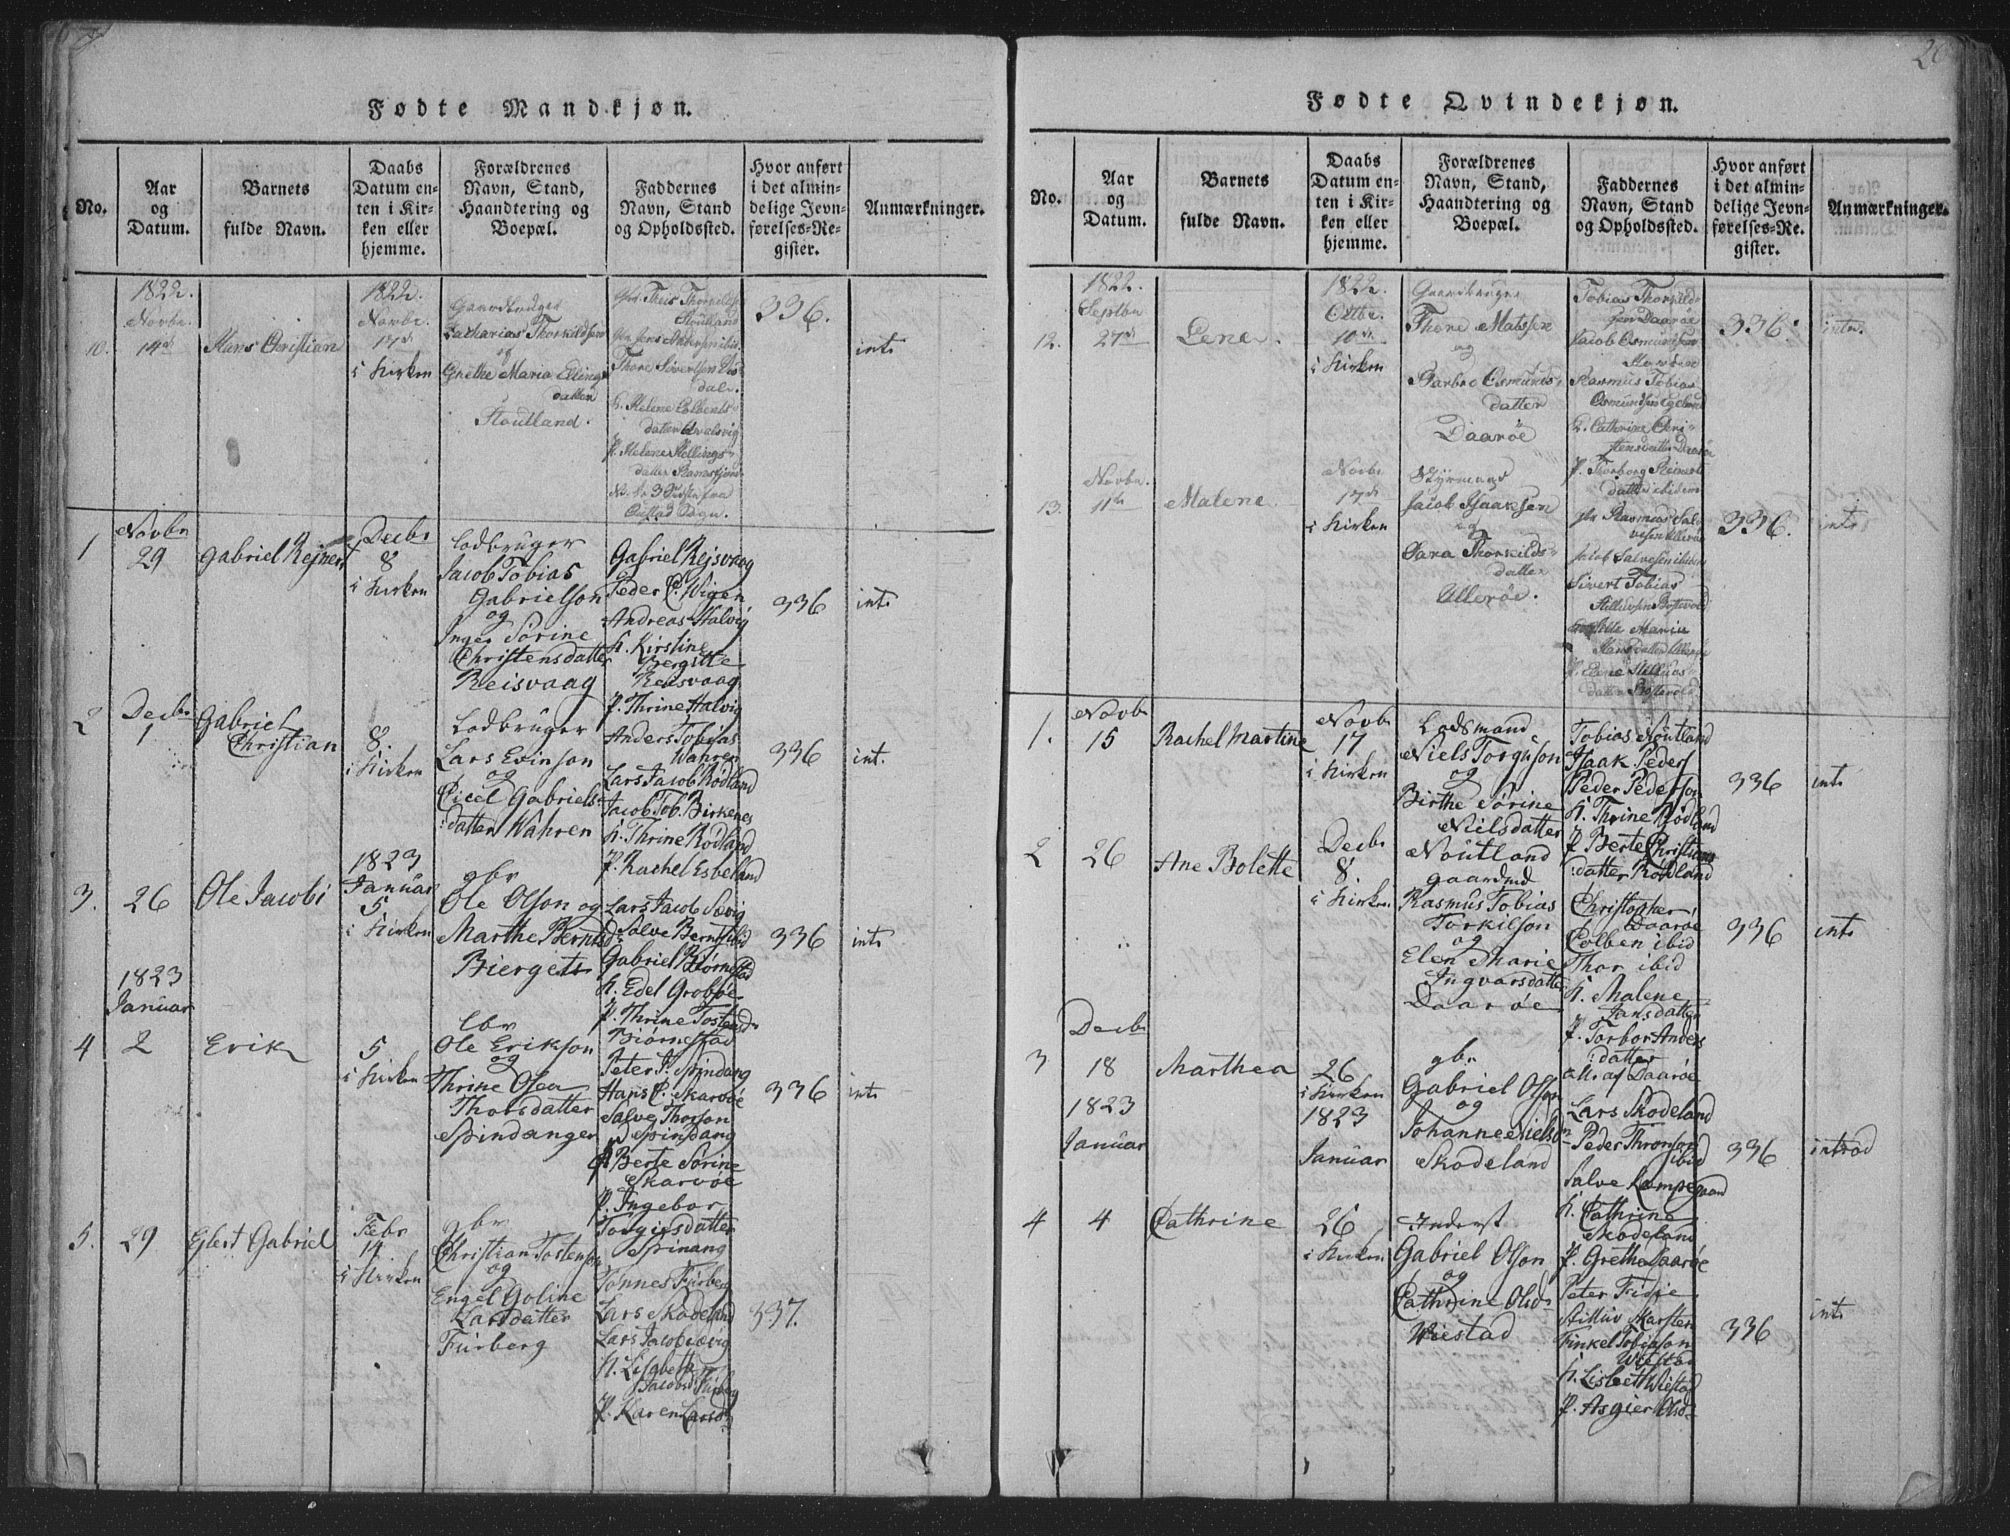 Fødte Mandkjøn.
No.
Aar
og
Datum.
Barnets
fulde Navn.
Daabs
Datum en-
ten i Kir-
ken eller
hjemme.
Forældrenes
Navn, Stand,
Haandtering og
Boepæl.
Faddernes
Navn, Stand
og Opholdssted.
Hvor anført
i det almin-
delige Jevn-
førelses-Re-
gister.
Anmærkninger.
10.
1822.
Novbr.
14de
Hans Christian
1822.
Novbr.
17de
i Kirken
Gaardbruger
Zacharias Thorkildsen
og
Grethe Maria Ellings
datter
Stoutland.
Gbr. Theis Thorkilds
Stoutland
336.
int.
1
Novbr
29
Gabriel Rejnert
Decbr
8
i Kirken
Lodbruger
Jacob Tobias
Gabrielson
og
Inger Sörine
Christensdatter
Reisvaag
Gabriel Rejsvaag
Peder C. Wigen
Andreas Halvig
K. Kirstine
Bergitte
Reisvaag
P. Thrine Halvig
336
int.
2
Decbr
1
Gabriel
Christian
8.
i Kirken
Lodbruger
Lars Evinson
og
Cicel Gabriels-
datter Wahren
Anders Tobias
Wahren
Lars Jacob Rödland
Jacob Tob. Birkenes
K. Thrine Rödland
P. Rachel Esbeland
336
int.
3.
26
Ole Jacobi
1823
Januar
5
i Kirken
gbr
Ole Olson og
Marthe Berntsd:
Bierget
Lars Jacob Sævig
Salve Berntsen
Gabriel Biørnestad
K. Edel Grobøe
P. Thrine Tostend:
Biørnestad
336
int.
1823
Januar
4
2
Erik
5
i Kirken
lbr
Ole Erikson
og
Thrine Olea
Thorsdatter
Spindanger
Peter J. Spindang
Hans C. Skarvöe
Salve Thorson
Spindang
K. Berte Sörine
Skarvöe
P. Ingebor
Torgiersdatter
Spinang
336
int.
5.
29
Ejlert Gabriel
Febr
14.
i Kirken
gbr
Christian Tostenson
og
Engel Goline
Larsdatter
Furberg
Tönnes Furberg
Lars Skodeland
Lars Jacob Sævig
K. Lisbeth
Jacobsd.
P. Karen Larsd.
337.
Fødte Qvindekjøn.
20
No.
Aar
og
Datum.
Barnets
fulde Navn.
Daabs
Datum en-
ten i Kir-
ken eller
hjemme.
Forældrenes
Navn, Stand,
Haandtering og
Boepæl.
Faddernes
Navn, Stand
og Opholdssted.
Hvor anført
i det almin-
delige Jevn-
førelses-Re-
gister.
Anmærkninger.
12.
1822.
Septbr
27de
Lene.
1822.
Octbr.
10de
i Kirken
Gaardbruger
Thore Matssen
og
Barbro Osmunds-
datter
Daaröe
Tobias Thorkild-
sen Daaröe
Jacob Osmundsen
Rasmus Tobias
Osmundsen Egeland
K. Cathrine Chri-
stensdatter Daaröe
P. Thorborg Reinert
datter ibidem
336.
intr.
13.
Novbr.
11te
Malene
Novbr
17de
i Kirken
Styrmand
Jacob Isaaksen
og
Sara Thorkilds-
datter
Ulleröe.
gbr Rasmus Sal-
vesen Ulleröe
Jacob Salvesen ibidem
Sivert Tobias
336.
int.
1.
Novbr
15
Rachel Martine
Novbr
17
i Kirken
Lodsmand
Niels Torguson
og
Birthe Sörine
Nielsdatter
Noutland
Tobias Noutland
Isaak Peders
Peder Pederson
K. Thrine Rödland
P. Berte Christians
datter Rödland
336
int.
2
26
Ane Bolette
Decbr
8.
i Kirken
gaardmd
Rasmus Tobias
Torkilson
og
Elen Marie
Ingvarsdatter
Daaröe
Christopher
Daaröe
Colben ibid
Thor ibid
K. Malene
Jansdatter
P. Torbor Anders
datter
all af Daaröe
336
int.
3
Decbr
18
Marthea
26
i Kirken
gbr
Gabriel Olson
og
Johanne Nielsd:
Skodeland
Lars Skodeland
Peder Thronson
ibid
Salve Kompegaard
K. Cathrine
Skodeland
P. Grethe Daaröe
336
introd
1823
Januar
4
4
Cathrine
1823
Januar
26
i Kirken
Inderst
Gabriel Olson
og
Cathrine Olsd:
Wiestad
Peter Fidje
Finkel Tobiason
Wiestad
K. Lisbeth Wiestad
P. Asgier Olsd:
336
int.